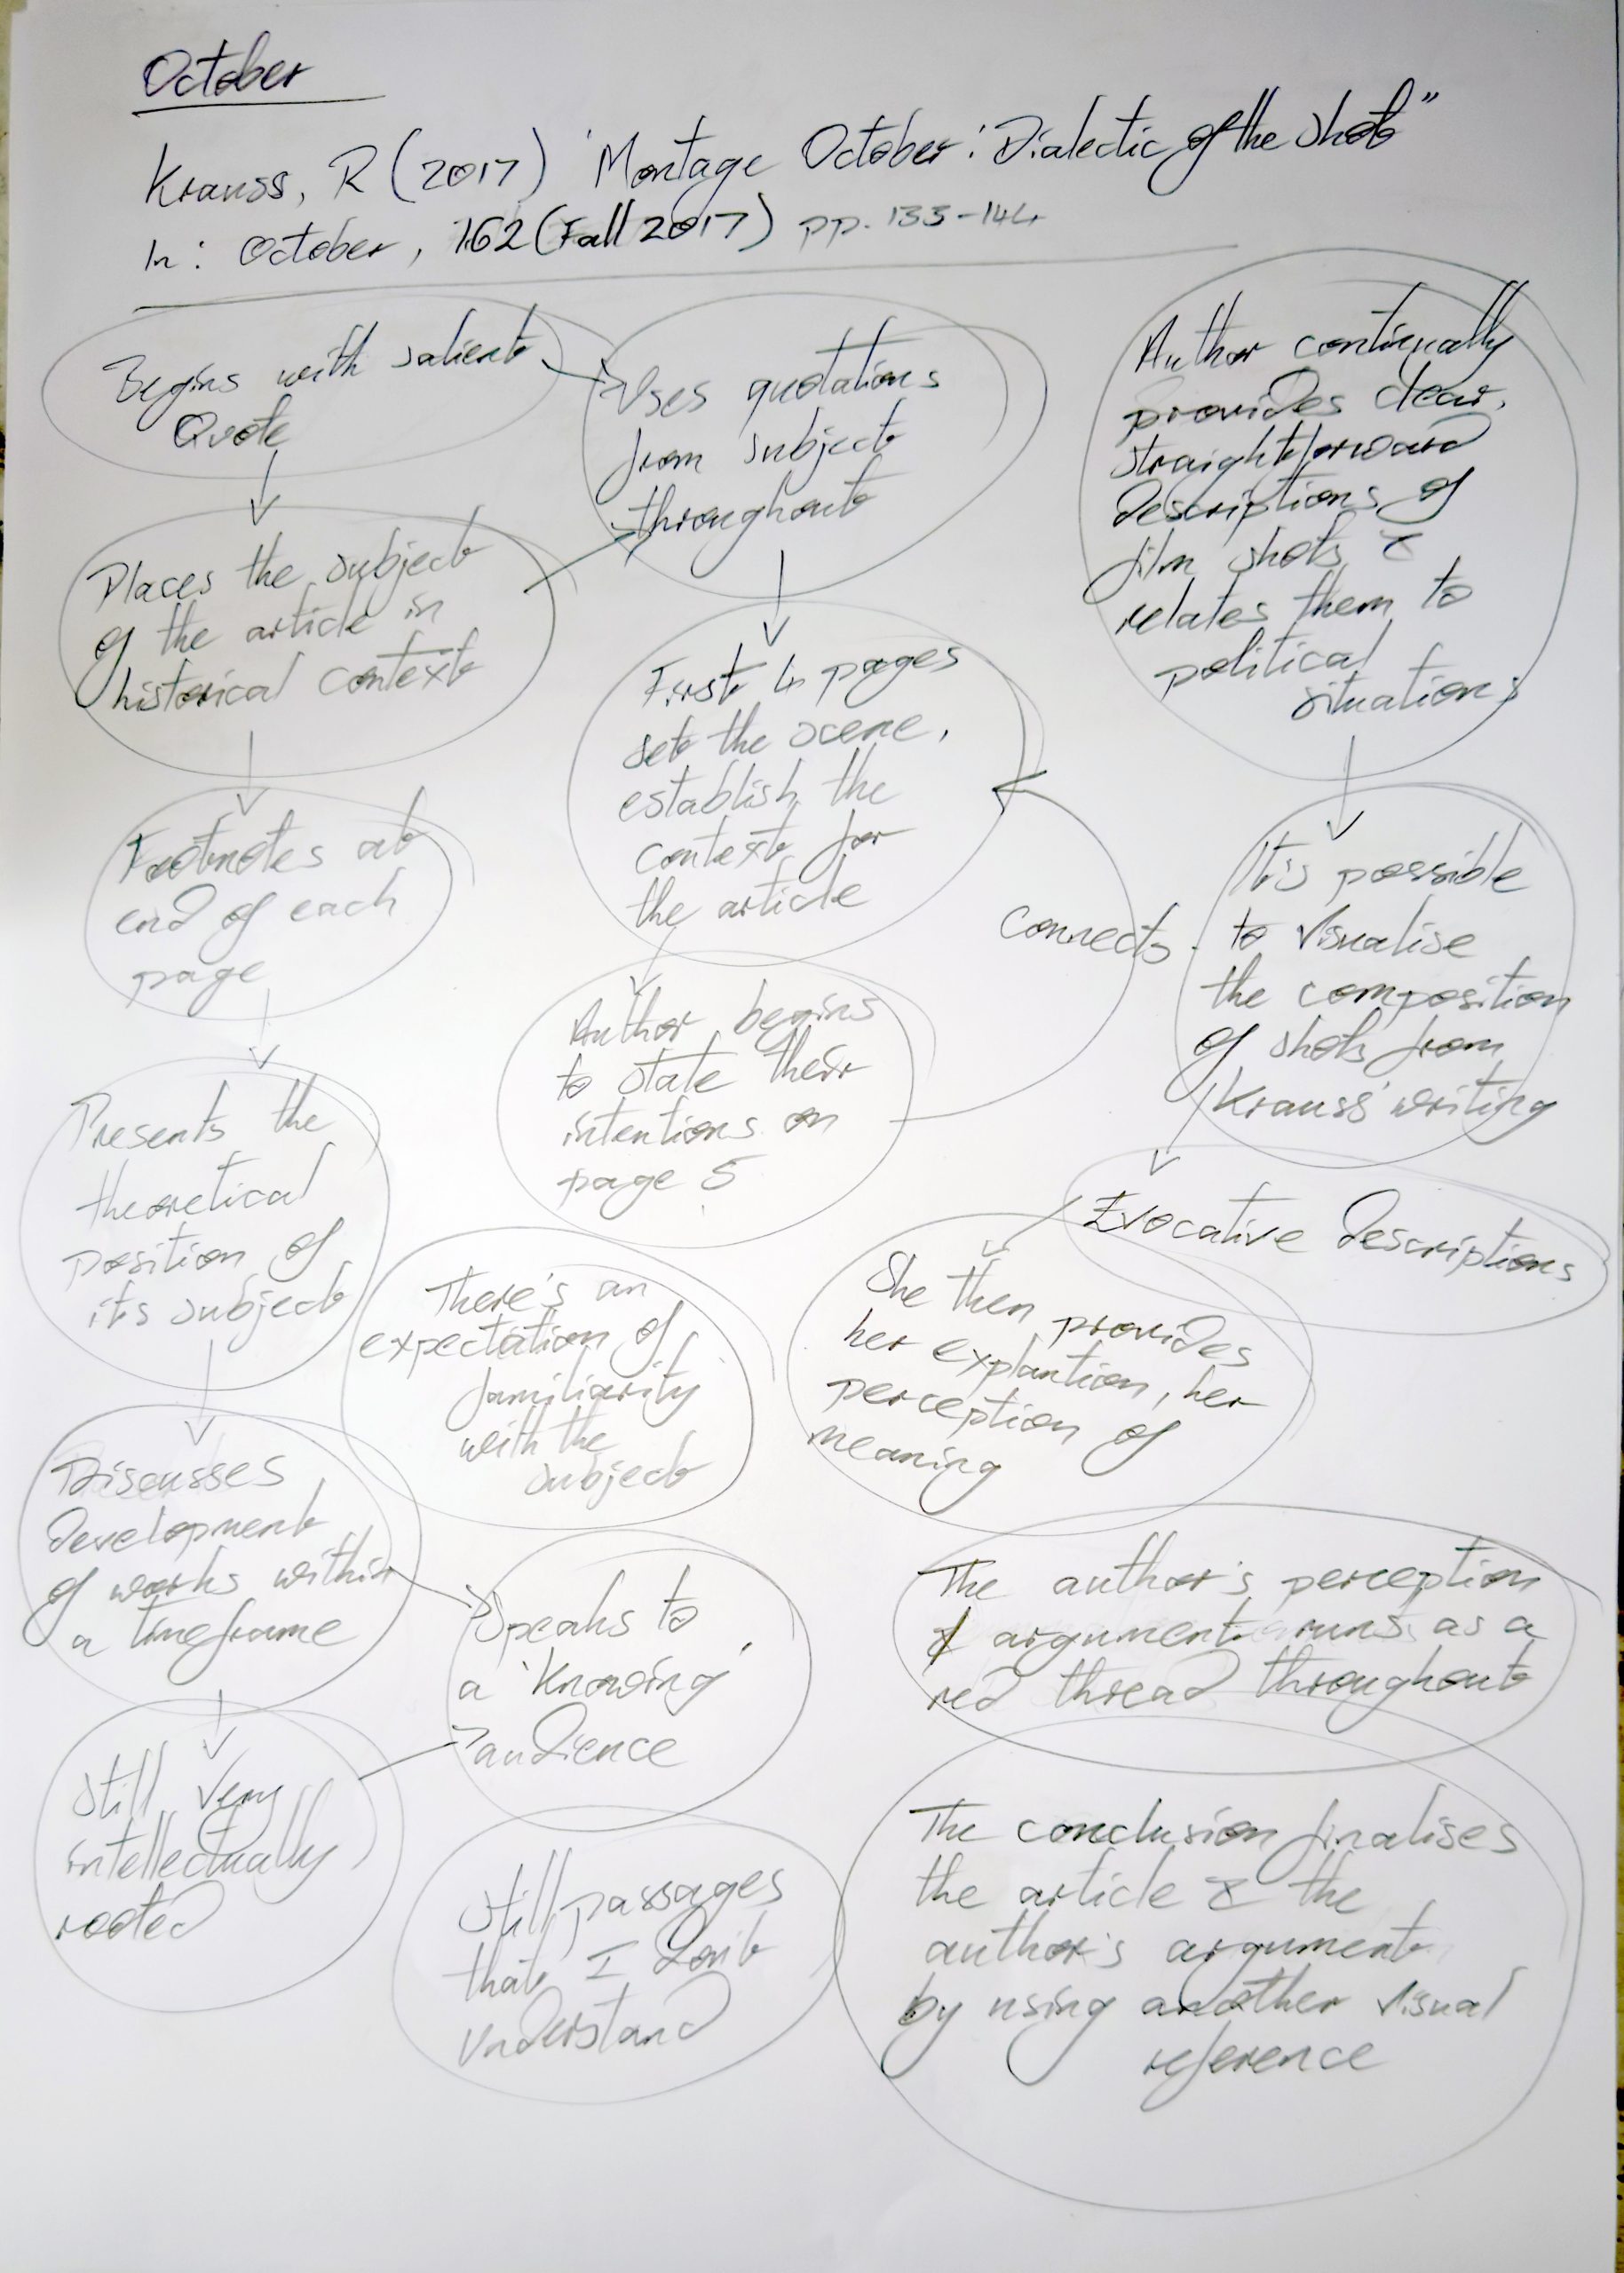 October
Krauss, R (2017) 'Montage October: Dialectic of the Shot"
In: October, 162 (Fall 2017) pp. 133-144
Begins with salient
Quote
Places the subject
of the article in
historical context
Footnotes at
end of each
page
Presents the
theoretical
position of
its subject
Discusses
development
of works within
a timeframe
Still very
intellectually
rooted
Uses quotations
from subject
throughout
First 4 pages
set the scene,
establish the
context for
the article
Author begins
to state their
intentions on
page 5
Connects
There's an
expectation of
familiarity
with the
subject
Speaks to
a 'knowing'
audience
Still passages
that I don't
understand
Author continually
provides clear,
straightforward
descriptions of
film shots &
relates them to
political
situations
It's possible
to visualise
the composition
of shots from
Krauss' writing
Evocative descriptions
She then provides
her explantion, her
perception of
meaning
The author's perception
& argument runs as a
red thread throughout
The conclusion finalises
the article & the
author's argument
by using another visual
reference